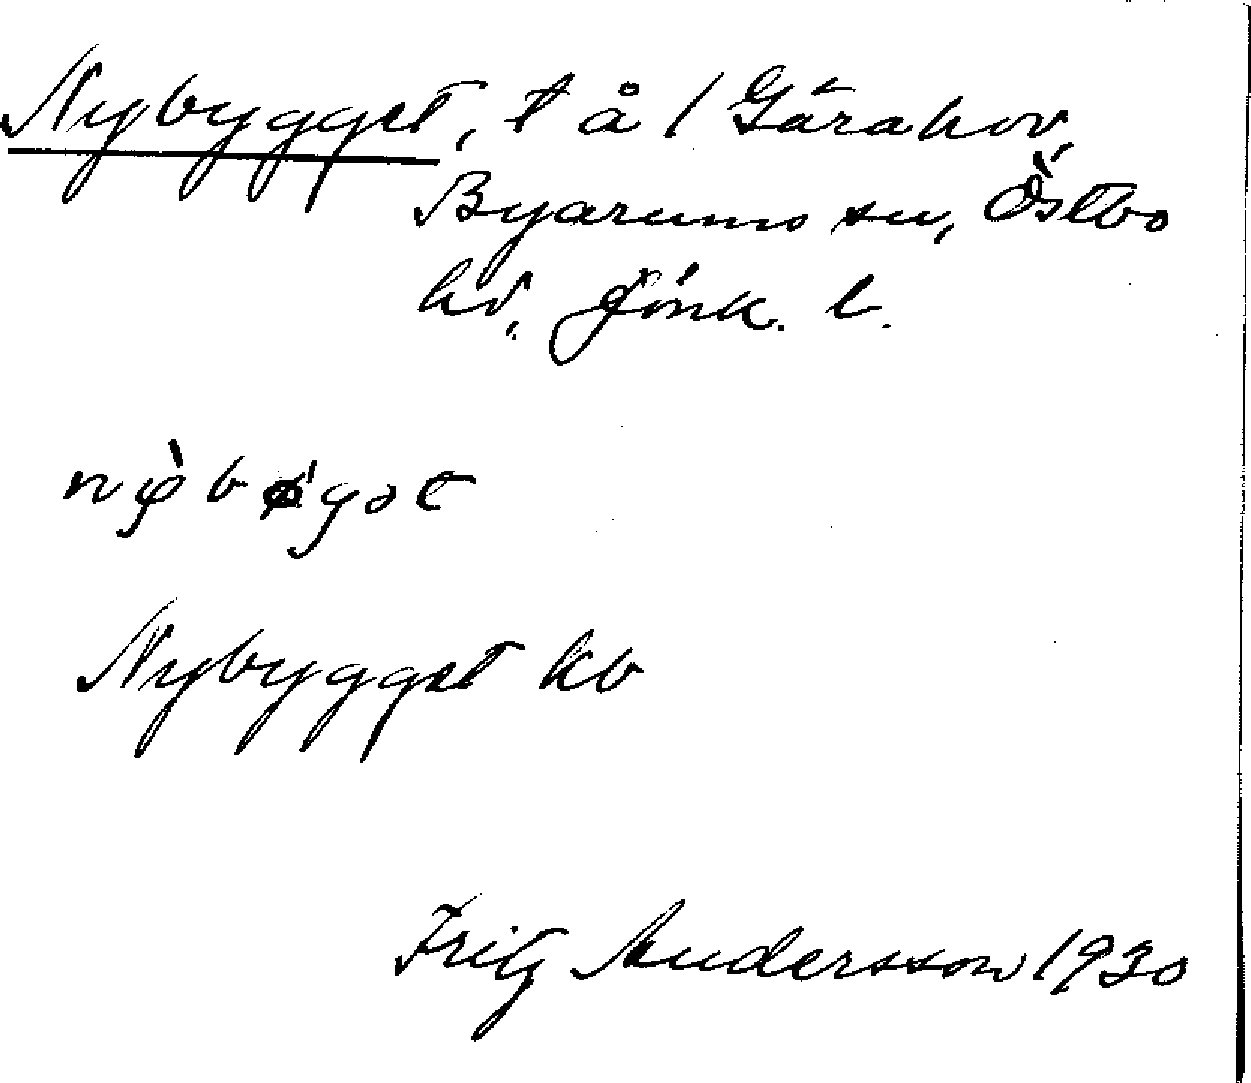 Nybygget, t å 1 Gärahov,
Byarums sn, Östbo
hd, Jönk. l.
Nybygget kb
Fritz Andersson 1930